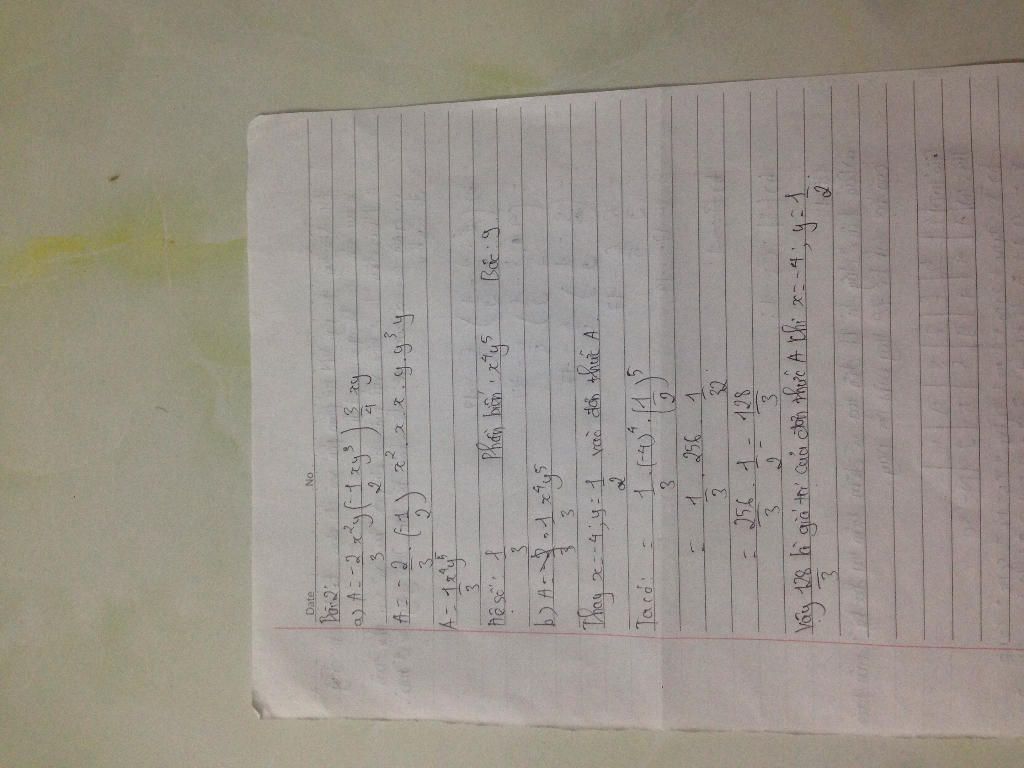 Date No
Bài 2:
a) A = -2/3 x²y (-1/2 xy³) 3/4 xy
A = -2/3 . (-1/2) x² . x . x . y . y³ . y
A = 1/3 x⁴y⁵
Hệ số: 1/3 Phần biến: x⁴y⁵ Bậc: 9
b) A = 1/3 x⁴y⁵
Thay x = -4; y = 1/2 vào đơn thức A.
Ta có: = 1/3 . (-4)⁴ . (1/2)⁵
= 1/3 . 256 . 1/32
= 256/3 . 1/2 = 128/3
Vậy 128/3 là giá trị của đơn thức A khi x = -4; y = 1/2.